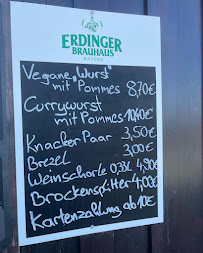 ERDINGER
BRAUHAUS
BAYERN
Vegane „Wurst"
mit Pommes 8,70€
Currywurst
mit Pommes 10,40€
Knacker Paar 3,50€
Brezel 3,00€
Weinschorle 0,33L 4,90€
Brockensplitter 4,00€
Kartenzahlung ab 10€